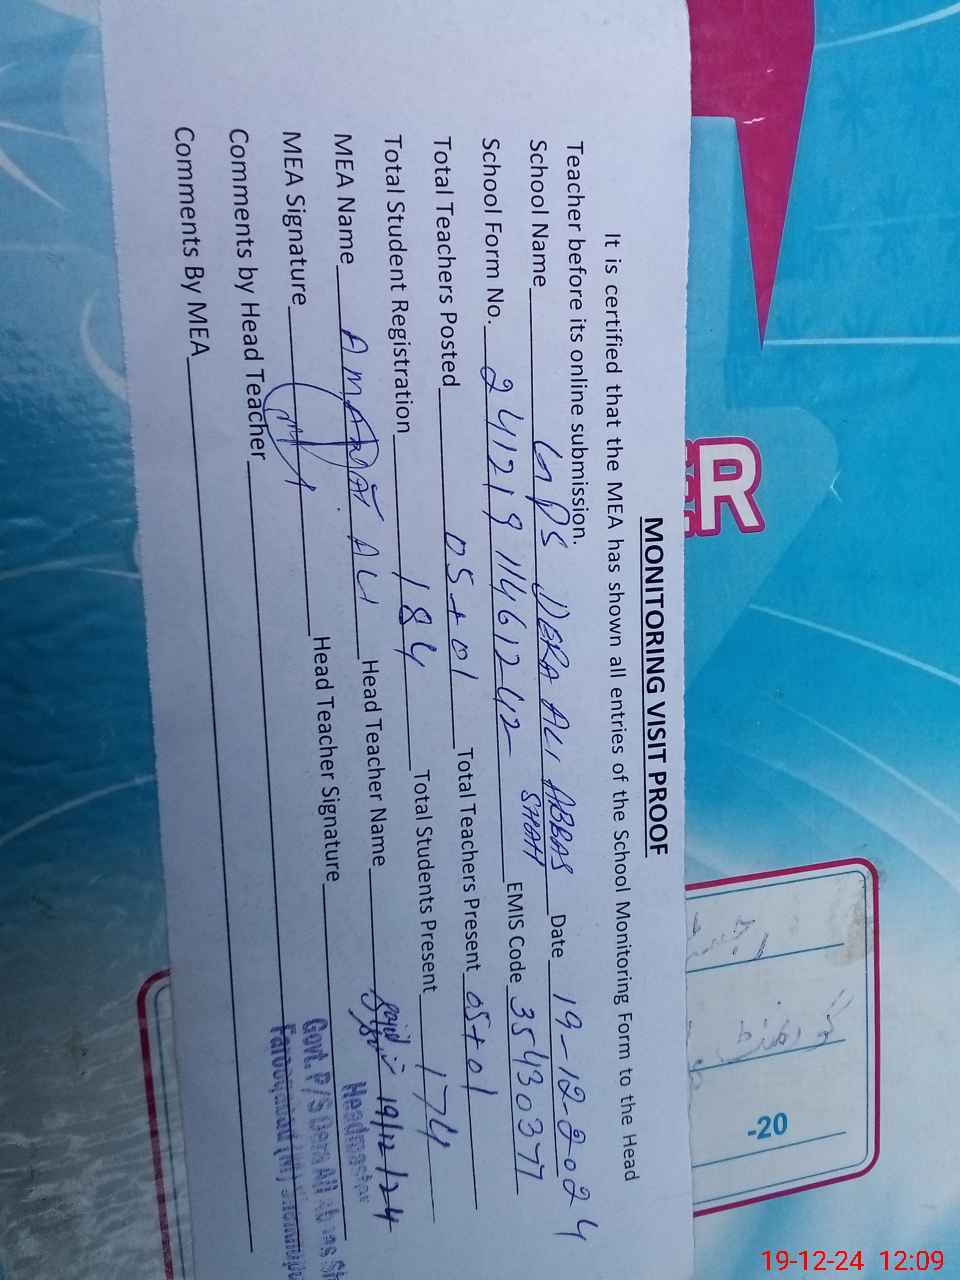 MONITORING VISIT PROOF
It is certified that the MEA has shown all entries of the School Monitoring Form to the Head
Teacher before its online submission.
School Name GPS DERA ALI ABBAS SHAH Date 19-12-2024
School Form No. 24121911461242 EMIS Code 35430377
Total Teachers Posted 05+01 Total Teachers Present 05+01
Total Student Registration 184 Total Students Present 174
MEA Name AMANAT ALI Head Teacher Name
MEA Signature Head Teacher Signature 19/12/24
Headmaster
Comments by Head Teacher Govt. P/S Dera Ali Abbas Sh
Farooqabad (M)
Comments By MEA
R
-20
19-12-24 12:09